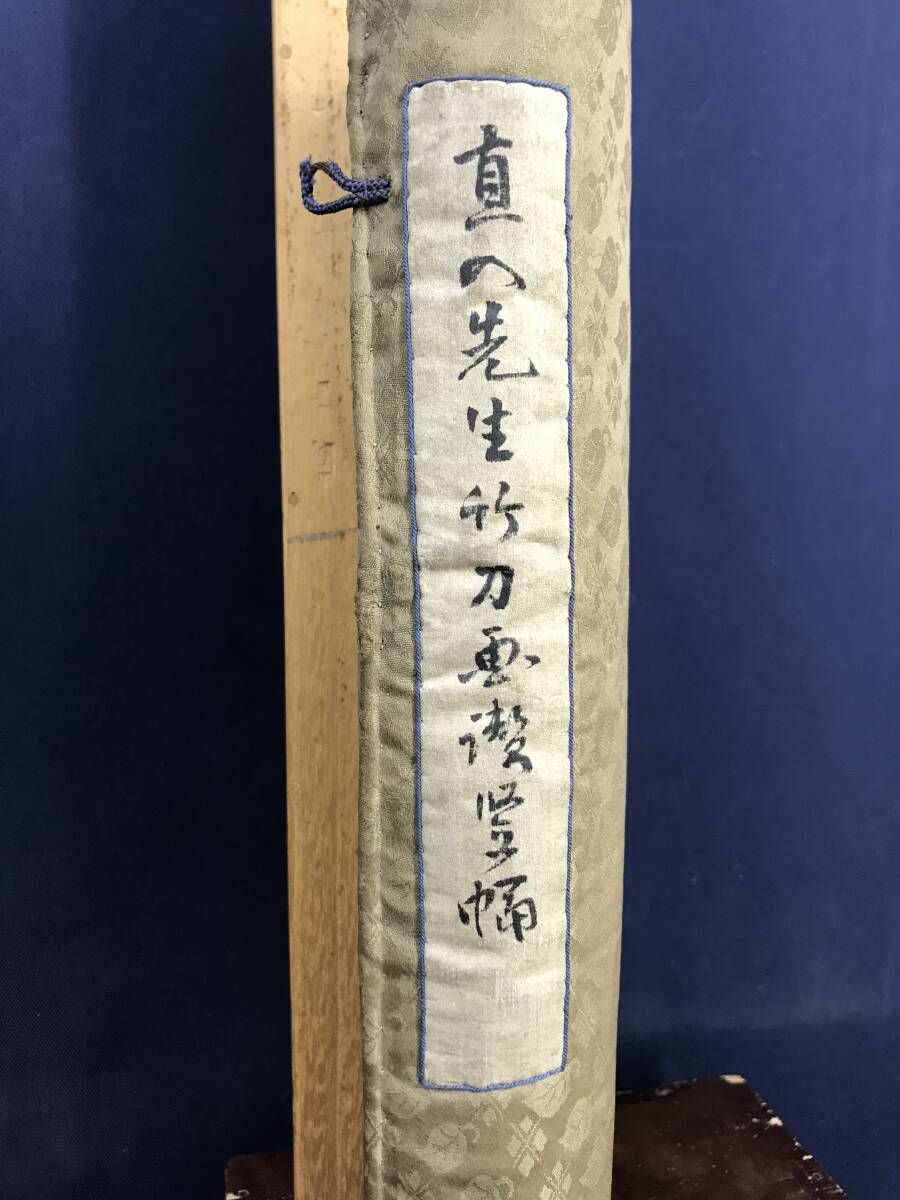 直入先生竹刀画讃竪幅